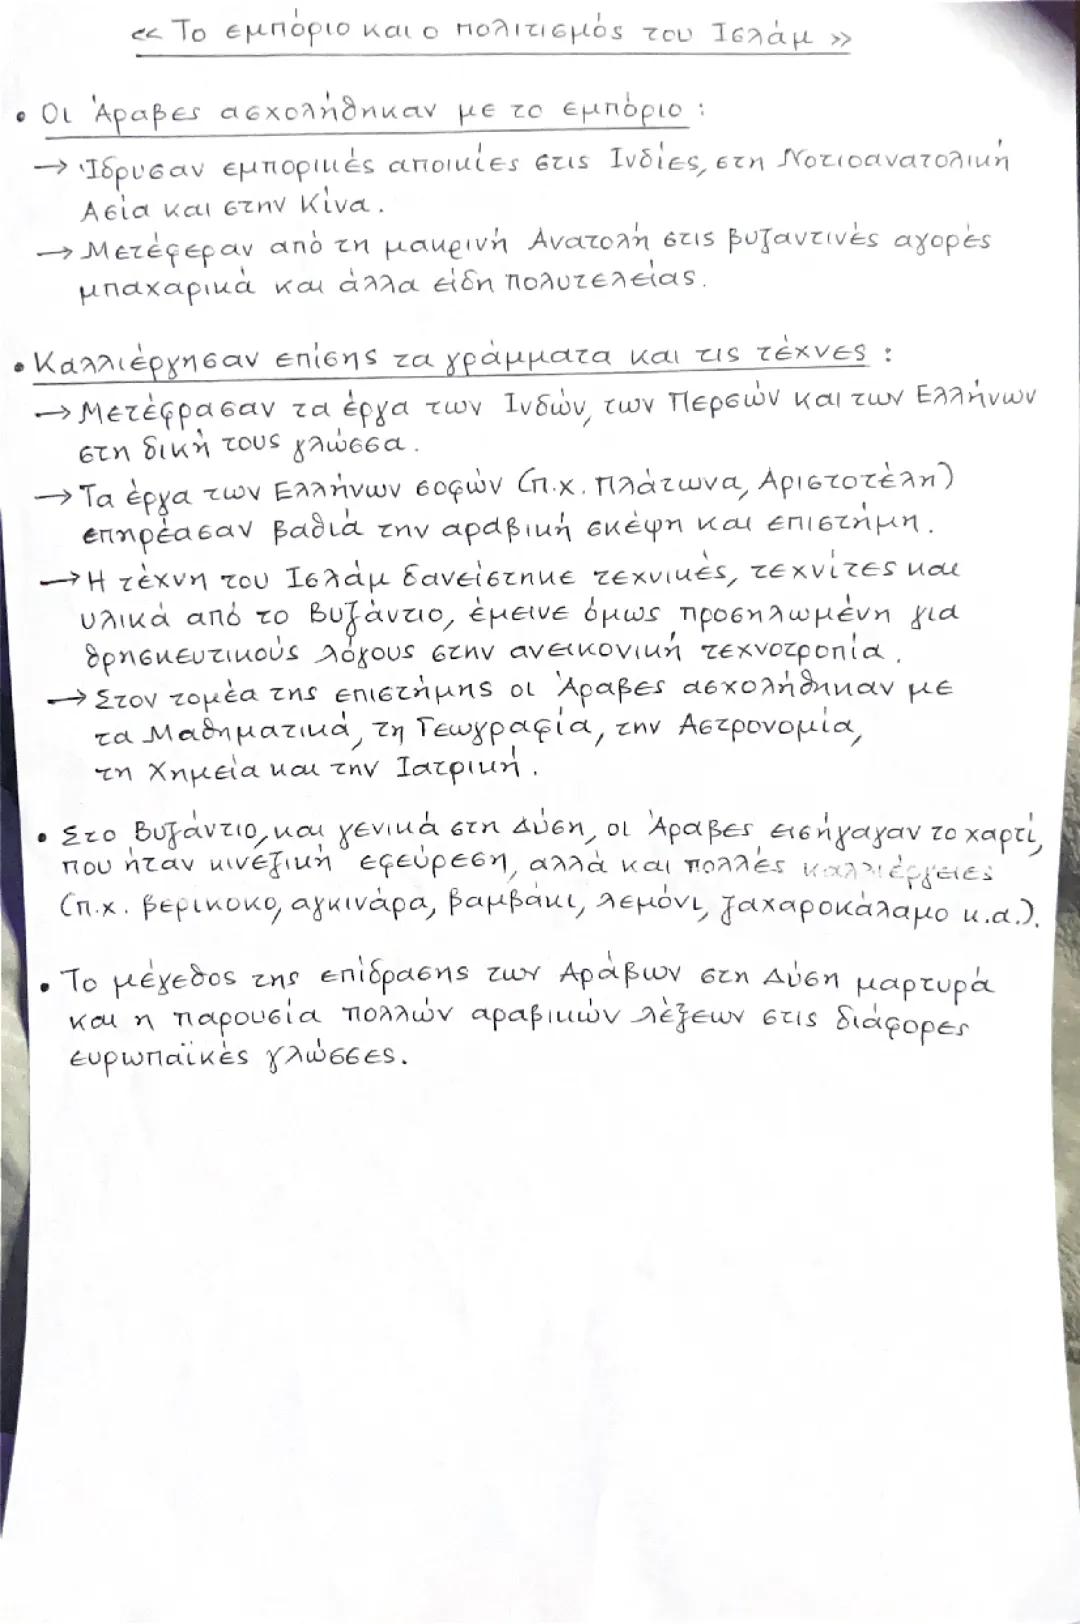 << Το εμπόριο και ο πολιτισμός του Ισλάμ >>
• Οι Άραβες ασχολήθηκαν με το εμπόριο :
→ Ίδρυσαν εμπορικές αποικίες στις Ινδίες, στη Νοτιοανατολική
Ασία και στην Κίνα.
→ Μετέφεραν από τη μακρινή Ανατολή στις βυζαντινές αγορές
μπαχαρικά και άλλα είδη πολυτελείας.
• Καλλιέργησαν επίσης τα γράμματα και τις τέχνες :
→ Μετέφρασαν τα έργα των Ινδών, των Περσών και των Ελλήνων
στη δική τους γλώσσα.
→ Τα έργα των Ελλήνων σοφών (π.χ. Πλάτωνα, Αριστοτέλη)
επηρέασαν βαθιά την αραβική σκέψη και επιστήμη.
→ Η τέχνη του Ισλάμ δανείστηκε τεχνικές, τεχνίτες και
υλικά από το Βυζάντιο, έμεινε όμως προσηλωμένη για
θρησκευτικούς λόγους στην ανεικονική τεχνοτροπία.
→ Στον τομέα της επιστήμης οι Άραβες ασχολήθηκαν με
τα Μαθηματικά, τη Γεωγραφία, την Αστρονομία,
τη Χημεία και την Ιατρική.
• Στο Βυζάντιο, και γενικά στη Δύση, οι Άραβες εισήγαγαν το χαρτί,
που ήταν κινέζικη εφεύρεση, αλλά και πολλές καλλιέργειες
(π.χ. βερίκοκο, αγκινάρα, βαμβάκι, λεμόνι, ζαχαροκάλαμο κ.α.).
• Το μέγεθος της επίδρασης των Αράβων στη Δύση μαρτυρά
και η παρουσία πολλών αραβικών λέξεων στις διάφορες
ευρωπαϊκές γλώσσες.